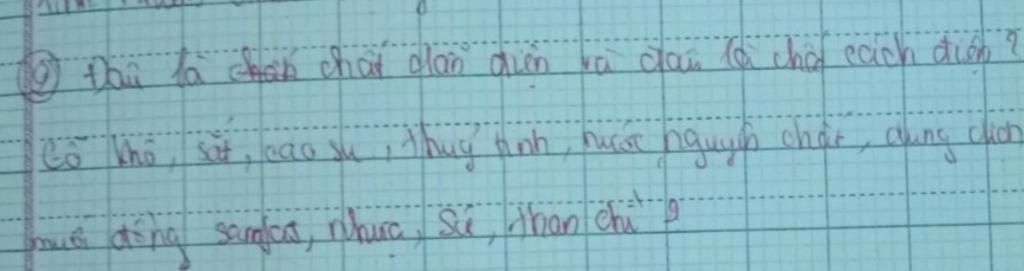 ⑨ Đâu là chất dẫn điện và đâu là chất cách điện ?
Gỗ khô, sắt, cao su, thuỷ tinh, nước nguyên chất, dung dịch
muối đồng sunfat, nhựa, sứ, than chì ?